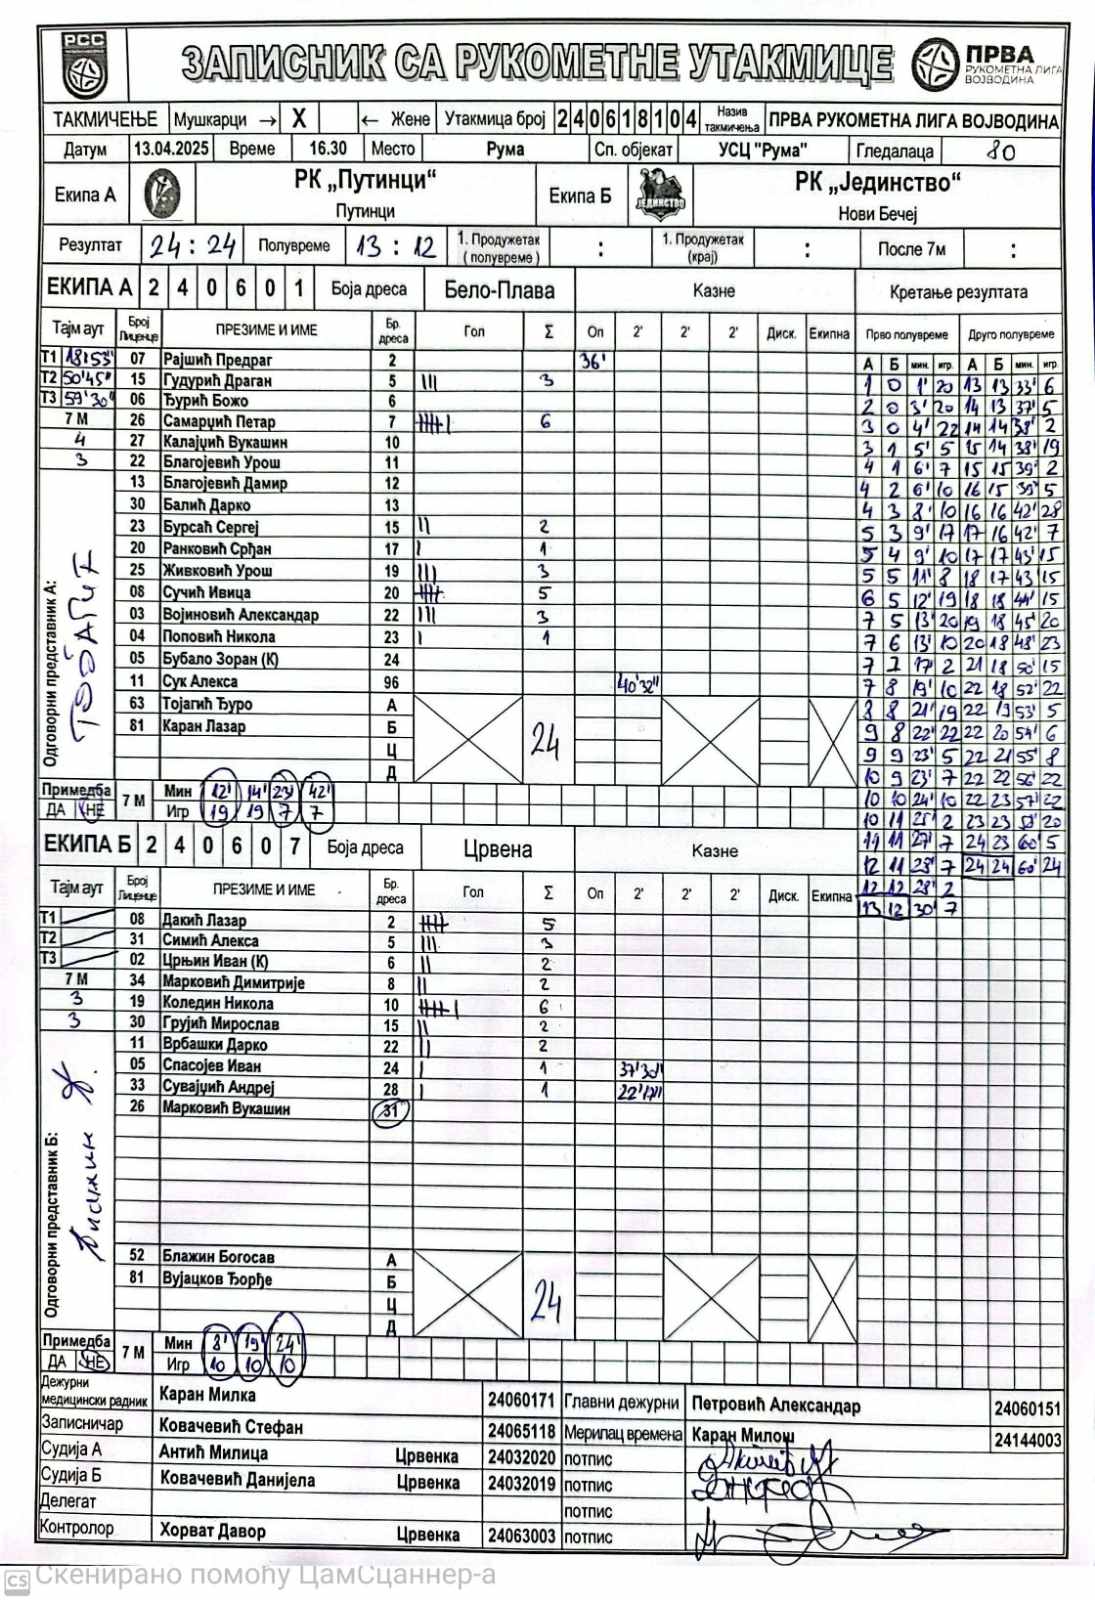 РСС
ЗАПИСНИК СА РУКОМЕТНЕ УТАКМИЦЕ
ПРВА
РУКОМЕТНА ЛИГА
ВОЈВОДИНА
ТАКМИЧЕЊЕ Мушкарци → X ← Жене Утакмица број 240618104 Назив такмичења ПРВА РУКОМЕТНА ЛИГА ВОЈВОДИНА
Датум 13.04.2025 Време 16.30 Место Рума Сп. објекат УСЦ "Рума" Гледалаца 80
Екипа А РК „Путинци“ Путинци Екипа Б ЈЕДИНСТВО РК „Јединство“ Нови Бечеј
Резултат 24 : 24 Полувреме 13 : 12 1. Продужетак (полувреме) : 1. Продужетак (крај) : После 7м :
ЕКИПА А 2 4 0 6 0 1 Боја дреса Бело-Плава Казне Кретање резултата
Тајм аут Број Лиценце ПРЕЗИМЕ И ИМЕ Бр. дреса Гол Σ Оп 2' 2' 2' Диск. Екипна Прво полувреме Друго полувреме
А Б мин. игр. А Б мин. игр.
Т1 18'53" 07 Рајшић Предраг 2 36'
Т2 50'45" 15 Гудурић Драган 5 III 3
Т3 59'30" 06 Ђурић Божо 6
7 М 26 Самарџић Петар 7 IIIII I 6
4 27 Калајџић Вукашин 10
3 22 Благојевић Урош 11
13 Благојевић Дамир 12
30 Балић Дарко 13
23 Бурсаћ Сергеј 15 II 2
20 Ранковић Срђан 17 I 1
25 Живковић Урош 19 III 3
08 Сучић Ивица 20 IIIII 5
03 Војиновић Александар 22 III 3
04 Поповић Никола 23 I 1
05 Бубало Зоран (К) 24
11 Сук Алекса 96 40'32"
63 Тојагић Ђуро А
81 Каран Лазар Б
Ц
Д
24
Одговорни представник А:
1 0 1' 20 13 13 33' 6
2 0 3' 20 14 13 37' 5
3 0 4' 22 14 14 38' 2
3 1 5' 5 15 14 38' 19
4 1 6' 7 15 15 39' 2
4 2 6' 10 16 15 39' 5
4 3 8' 10 16 16 42' 28
5 3 9' 17 17 16 42' 7
5 4 9' 10 17 17 43' 15
5 5 11' 8 18 17 43' 15
6 5 12' 19 18 18 44' 15
7 5 13' 20 19 18 45' 20
7 6 13' 10 20 18 48' 23
7 7 17' 2 21 18 50' 15
7 8 19' 10 22 18 52' 22
8 8 21' 19 22 19 53' 5
9 8 22' 22 22 20 54' 6
9 9 23' 5 22 21 55' 8
10 9 23' 7 22 22 56' 22
10 10 24' 10 22 23 57' 22
10 11 25' 2 23 23 59' 20
11 11 27' 7 24 23 60' 5
12 11 28' 7 24 24 60' 24
12 12 28' 2
13 12 30' 7
Примедба ДА НЕ 7 М
Мин 12' 14' 23' 42'
Игр 19 19 7 7
ЕКИПА Б 2 4 0 6 0 7 Боја дреса Црвена Казне
Тајм аут Број Лиценце ПРЕЗИМЕ И ИМЕ Бр. дреса Гол Σ Оп 2' 2' 2' Диск. Екипна
Т1 08 Дакић Лазар 2 IIIII 5
Т2 31 Симић Алекса 5 III 3
Т3 02 Црњин Иван (К) 6 II 2
7 М 34 Марковић Димитрије 8 II 2
3 19 Коледин Никола 10 IIIII I 6
3 30 Грујић Мирослав 15 II 2
11 Врбашки Дарко 22 II 2
05 Спасојев Иван 24 I 1 37'30"
33 Сувајџић Андреј 28 I 1 22'17"
26 Марковић Вукашин 31
52 Блажин Богосав А
81 Вујацков Ђорђе Б
Ц
Д
24
Одговорни представник Б:
Примедба ДА НЕ 7 М
Мин 8' 19' 24'
Игр 10 10 10
Дежурни медицински радник Каран Милка 24060171 Главни дежурни Петровић Александар 24060151
Записничар Ковачевић Стефан 24065118 Мерилац времена Каран Милош 24144003
Судија А Антић Милица Црвенка 24032020 потпис
Судија Б Ковачевић Данијела Црвенка 24032019 потпис
Делегат потпис
Контролор Хорват Давор Црвенка 24063003 потпис
CS Скенирано помоћу ЦамСцаннер-а